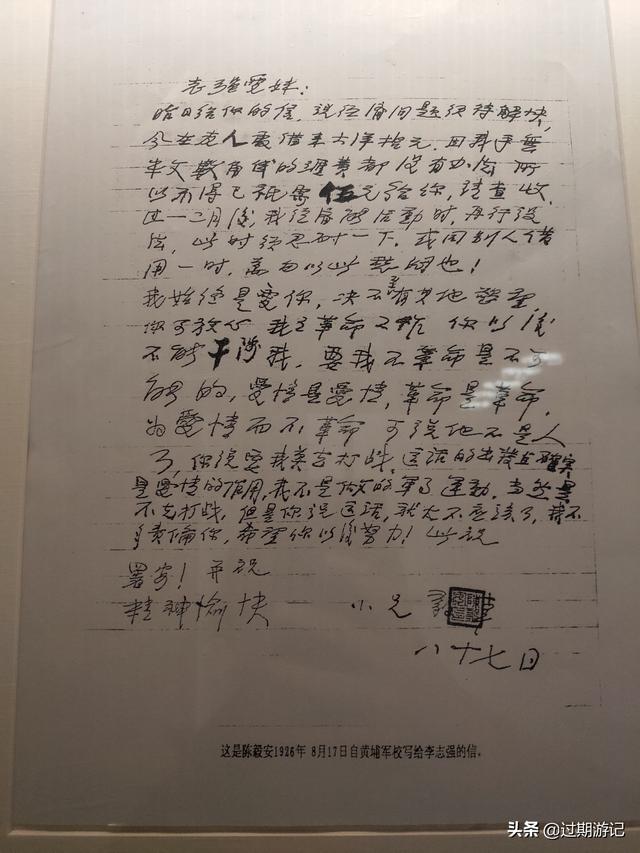 志强爱妹：
昨日给你的信，说经济问题须待解决，
今在友人处借来大洋拾元，因我手无
半文，数角伙的洒费都没有办法，所
以不得已祇寄伍元给你，请查收，
过一二月后，我经济略活动时，再行设
法，此时须忍耐一下，或向别人借
用一时，
我始终是爱你，决不有其他欲望，
你可放心 我之革命工作 你以后
不能干涉我，要我不革命是不可
能的，爱情是爱情，革命是革命，
为爱情而不革命 可说他不是人
了，你说要我莫去打战，这话的出发点确实
是爱情的作用，我不是做的军事运动，当然是
不去打战，但是你说这话，就太不应该了，我不
责备你，希望你以后努力！此祝
暑安！并祝
精神愉快 小兄
八 十七日
这是陈毅安1926年 8月17日自黄埔军校写给李志强的信。
头条 @过期游记